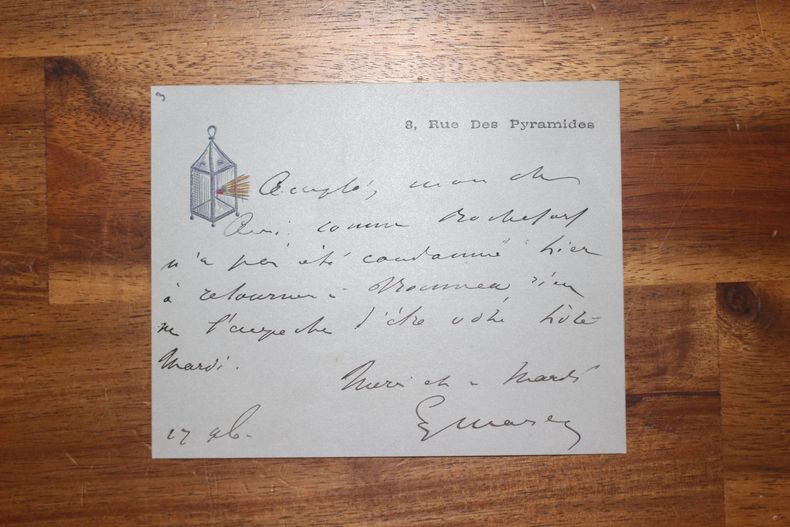 8, Rue Des Pyramides
Accepté, mon cher
Ami, comme Rochefort
n'a pas été condamné hier
à retourner à rien
ne l'empêche d'être votre hôte
Mardi.
Merci et à Mardi
17